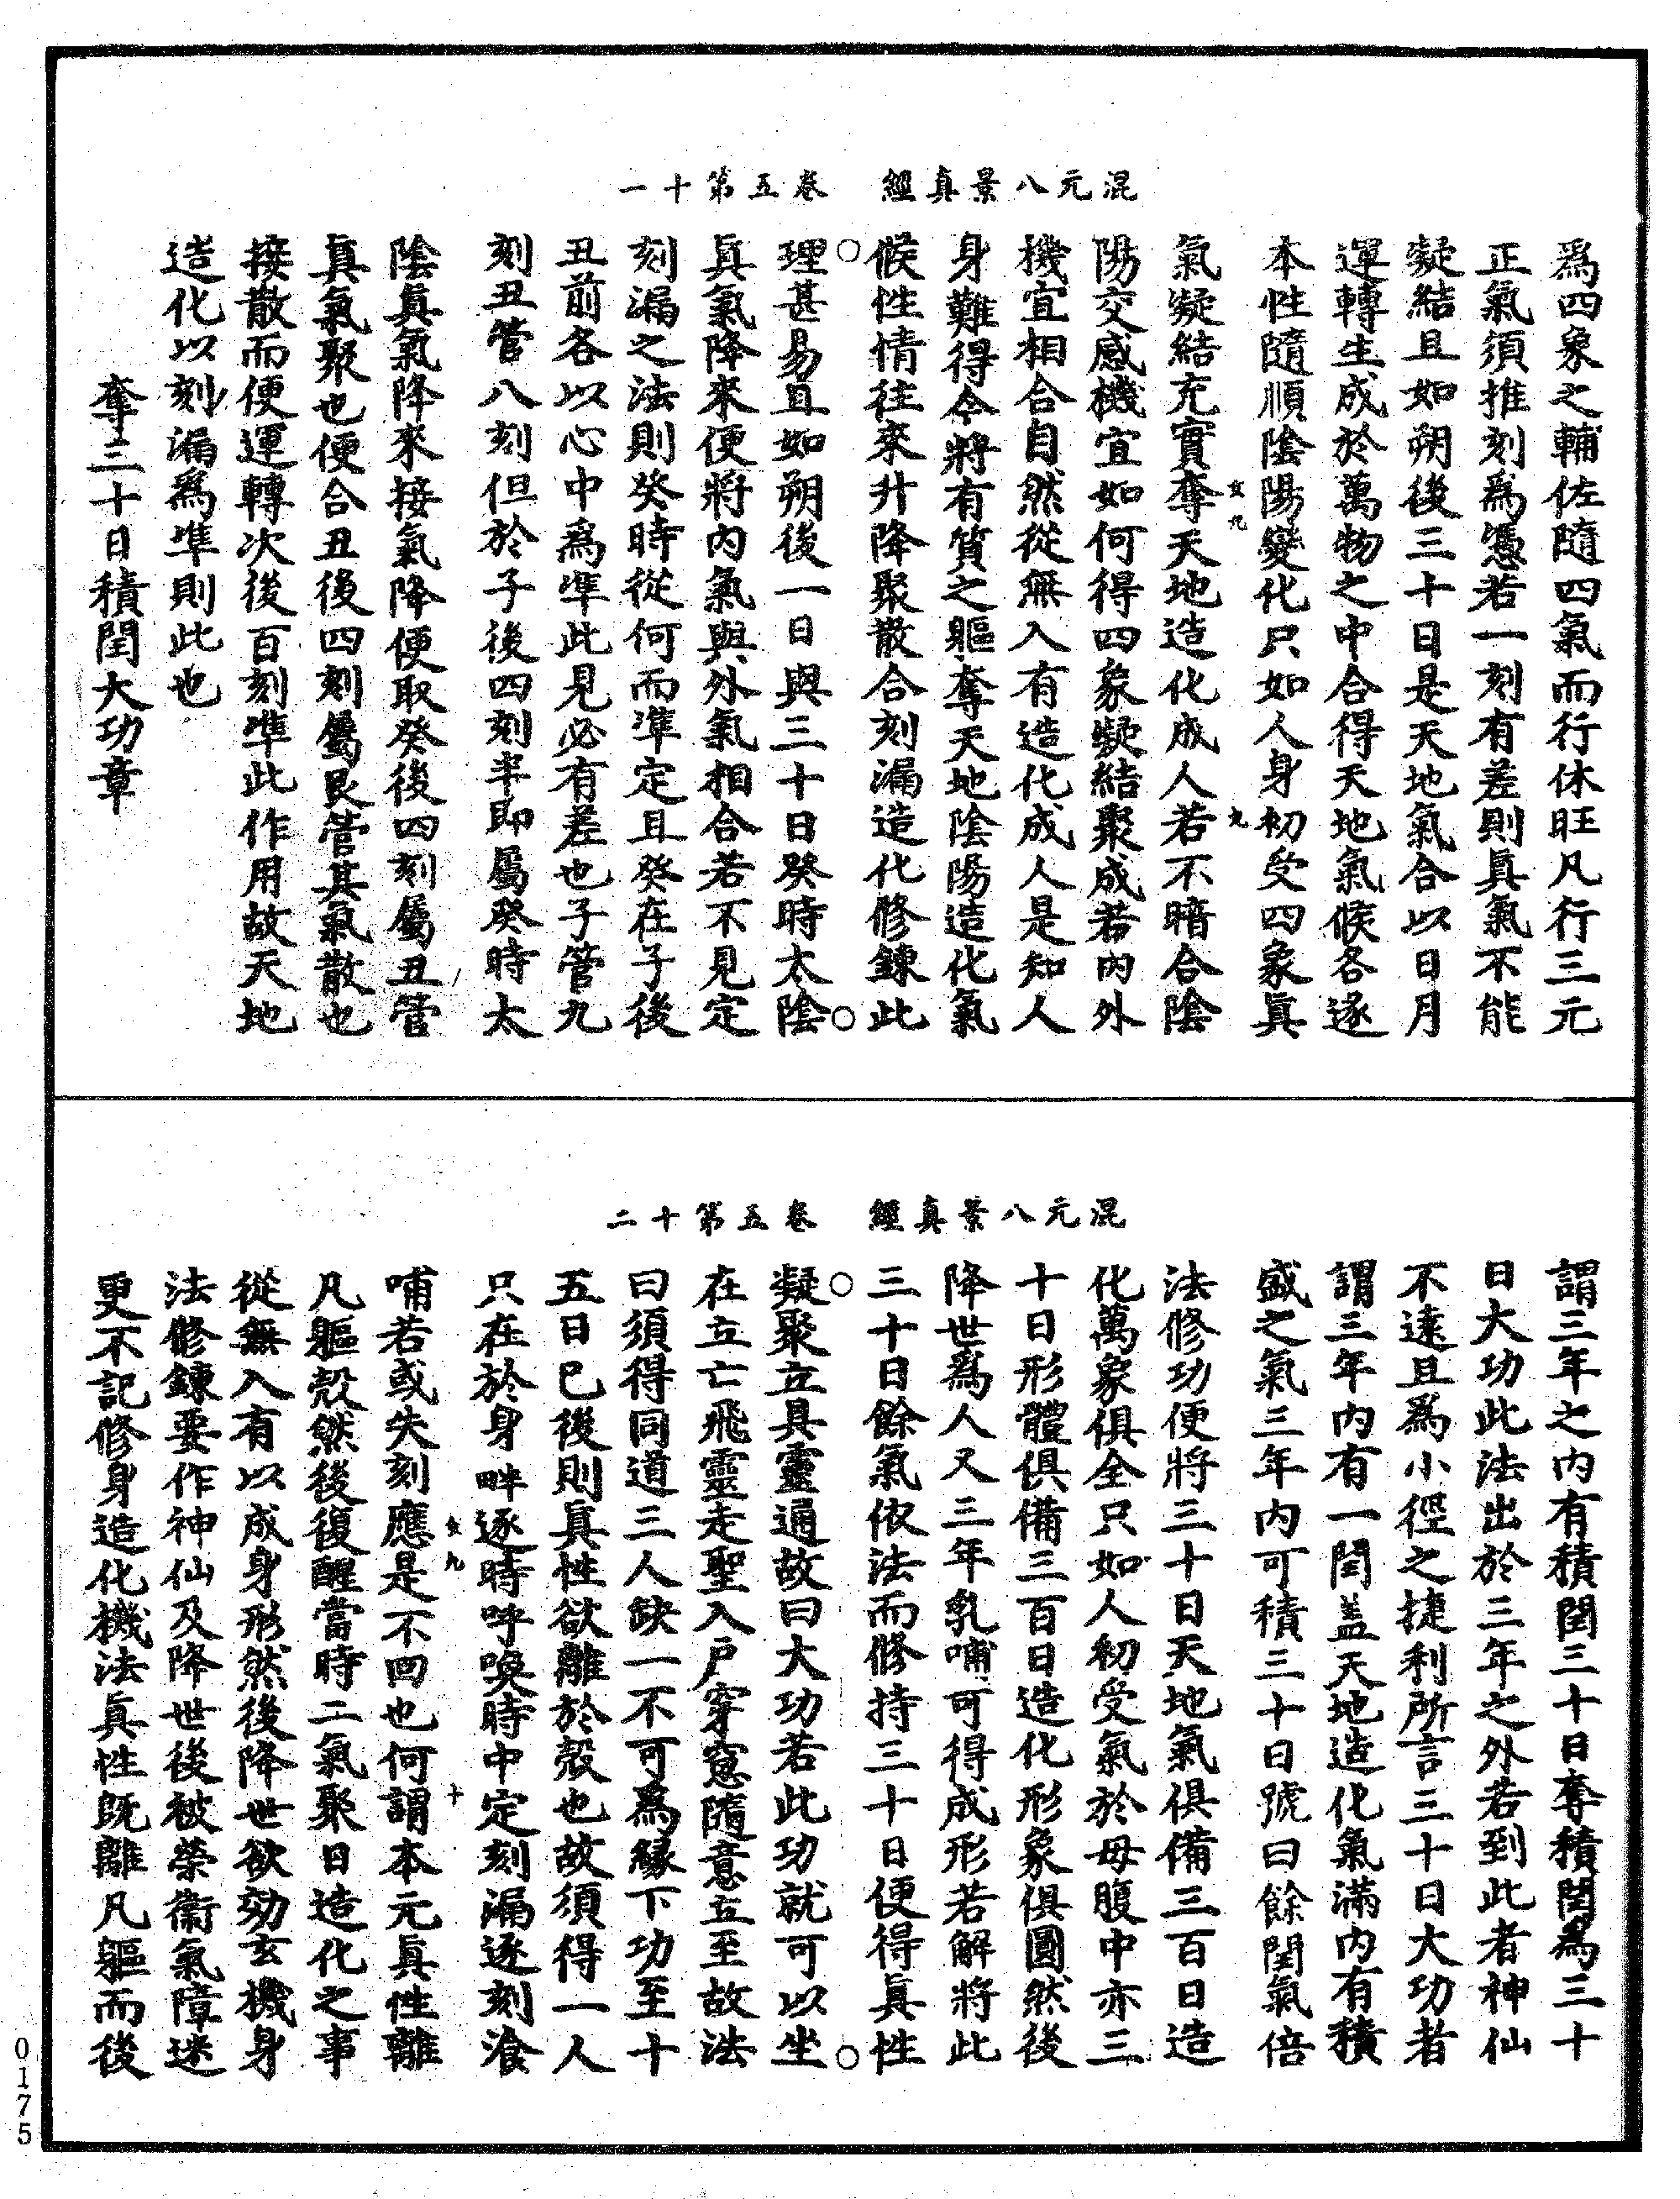 混元八景真經　卷五第十一
爲四象之輔佐隨四氣而行休旺凡行三元
正氣須推刻爲憑若一刻有差則真氣不能
凝結且如朔後三十日是天地氣合以日月
運轉生成於萬物之中合得天地氣候各逐
本性隨順陰陽變化只如人身初受四象真
氣凝結充實奪天地造化成人若不暗合陰
陽交感機宜如何得四象凝結聚成若內外
機宜相合自然從無入有造化成人是知人
身難得今將有質之軀奪天地陰陽造化氣
候性情往來升降聚散合刻漏造化修鍊此
理甚易且如朔後一日與三十日癸時太陰
真氣降來便將內氣與外氣相合若不見定
刻漏之法則癸時從何而準定且癸在子後
丑前各以心中爲準此見必有差也子管九
刻丑管八刻但於子後四刻半即屬癸時太
陰真氣降來接氣降便取癸後四刻屬丑管
真氣聚也便合丑後四刻屬艮管其氣散也
接散而便運轉次後百刻準此作用故天地
造化以刻漏爲準則此也
奪三十日積閏大功章
玄九
九
混元八景真經　卷五第十二
謂三年之內有積閏三十日奪積閏爲三十
日大功此法出於三年之外若到此者神仙
不遠且爲小徑之捷利所言三十日大功者
謂三年內有一閏盖天地造化氣滿內有積
盛之氣三年內可積三十日號曰餘閏氣倍
法修功便將三十日天地氣俱備三百日造
化萬象俱全只如人初受氣於母腹中亦三
十日形體俱備三百日造化形象俱圓然後
降世爲人又三年乳哺可得成形若解將此
三十日餘氣依法而修持三十日便得真性
凝聚立具靈通故曰大功若此功就可以坐
在立亡飛靈走聖入戶穿窓隨意立至故法
曰須得同道三人缺一不可爲緣下功至十
五日已後則真性欲離於殼也故須得一人
只在於身畔逐時呼喚時中定刻漏逐刻湌
哺若或失刻應是不回也何謂本元真性離
凡軀殼然後復醒當時二氣聚日造化之事
從無入有以成身形然後降世欲効玄機身
法修鍊要作神仙及降世後被榮衞氣障迷
更不記修身造化機法真性既離凡軀而後
玄九
十
0175